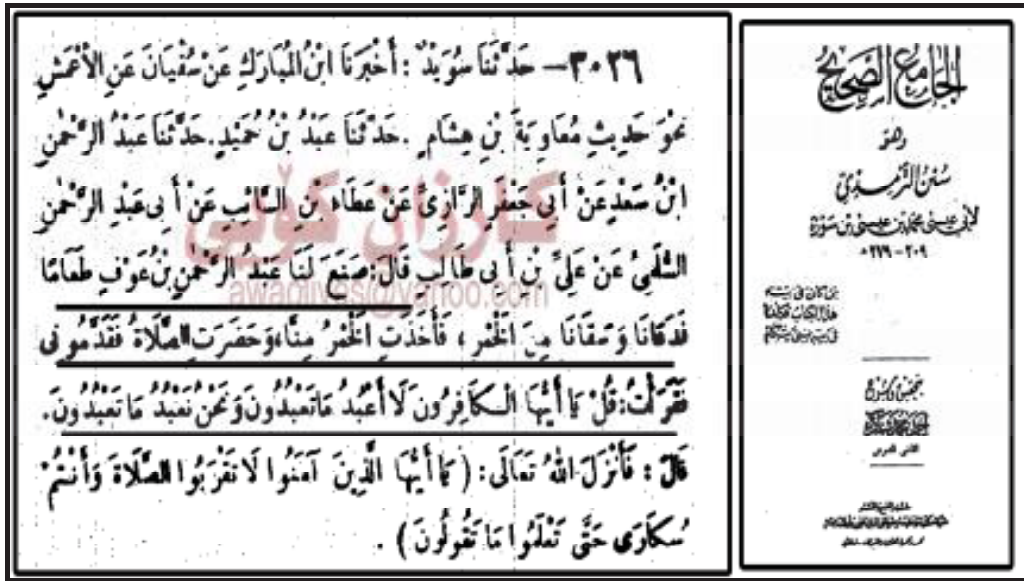 ٣٠٢٦ – حَدَّثَنَا سُوَيْدٌ : أَخْبَرَنَا ابْنُ الْمُبَارَكِ عَنْ سُفْيَانَ عَنِ الأَعْمَشِ
نَحْوَ حَدِيثِ مُعَاوِيَةَ بْنِ هِشَامٍ . حَدَّثَنَا عَبْدُ بْنُ حُمَيْدٍ . حَدَّثَنَا عَبْدُ الرَّحْمٰنِ
ابْنُ سَعْدٍ عَنْ أَبِي جَعْفَرٍ الرَّازِيِّ عَنْ عَطَاءِ بْنِ السَّائِبِ عَنْ أَبِي عَبْدِ الرَّحْمٰنِ
السُّلَمِيِّ عَنْ عَلِيِّ بْنِ أَبِي طَالِبٍ قَالَ : صَنَعَ لَنَا عَبْدُ الرَّحْمٰنِ بْنُ عَوْفٍ طَعَامًا
فَدَعَانَا وَسَقَانَا مِنَ الْخَمْرِ ، فَأَخَذَتِ الْخَمْرُ مِنَّا ، وَحَضَرَتِ الصَّلَاةُ فَقَدَّمُونِي
فَقَرَأْتُ : قُلْ يَا أَيُّهَا الْكَافِرُونَ لَا أَعْبُدُ مَا تَعْبُدُونَ وَنَحْنُ نَعْبُدُ مَا تَعْبُدُونَ .
قَالَ : فَأَنْزَلَ اللهُ تَعَالَى : ( يَا أَيُّهَا الَّذِينَ آمَنُوا لَا تَقْرَبُوا الصَّلَاةَ وَأَنْتُمْ
سُكَارَى حَتَّى تَعْلَمُوا مَا تَقُولُونَ ) .
كارزان كۆيى
awaqliyes@yahoo.com
الجامع الصحيح
وهو
سنن الترمذي
لأبي عيسى محمد بن عيسى بن سورة
٢٠٩ – ٢٧٩ ه
من كان في بيته
هذا الكتاب فكأنما
في بيته نبي يتكلم
بتحقيق وشرح
أحمد محمد شاكر
القاضي الشرعي